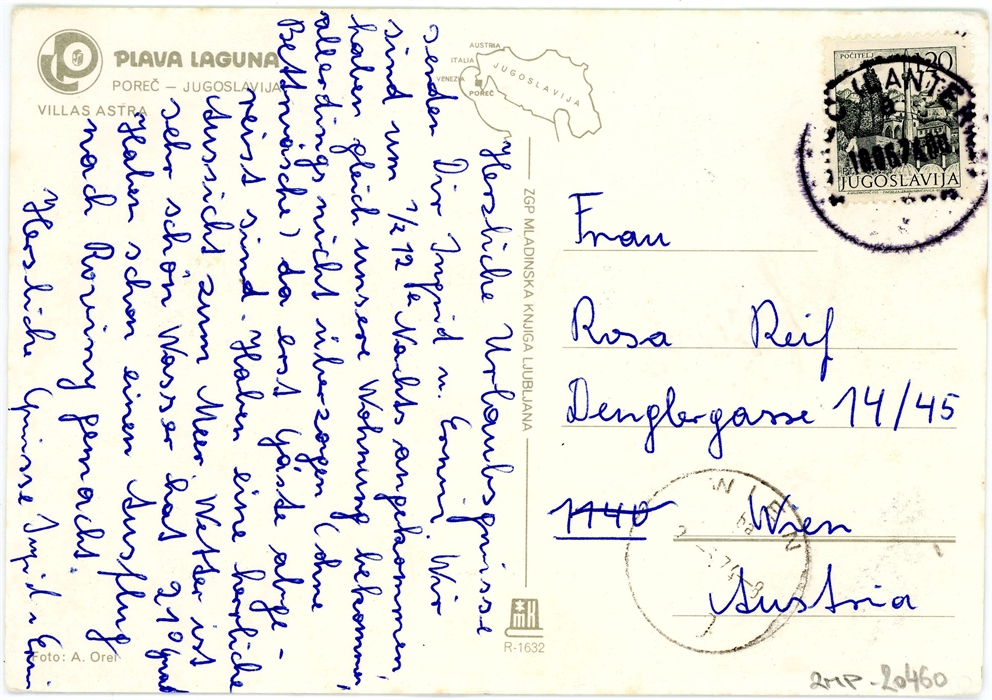 PLAVA LAGUNA
POREČ — JUGOSLAVIJA
VILLAS ASTRA
AUSTRIA
ITALIA
VENEZIA
POREČ
JUGOSLAVIJA
Herzliche Urlaubsgrüsse
senden Dir Ingrid u. Erwin. Wir
sind um 1/2 12h Nachts angekommen,
haben gleich unsere Wohnung bekommen,
allerdings nicht überzogen (ohne
Bettwäsche) da erst Gäste abge-
reist sind. Haben eine herrliche
Aussicht zum Meer. Wetter ist
sehr schön Wasser hat 21° Grad
Haben schon einen Ausflug
nach Roviny gemacht.
Herzliche Grüsse Ingrid u. Erwin
Foto: A. Orel
ZGP MLADINSKA KNJIGA LJUBLJANA
R-1632
POČITELJ
1.20
JUGOSLAVIJA
Frau
Rosa Reif
Denglergasse 14/45
1140 Wien
Austria
WIEN
2MP-20460